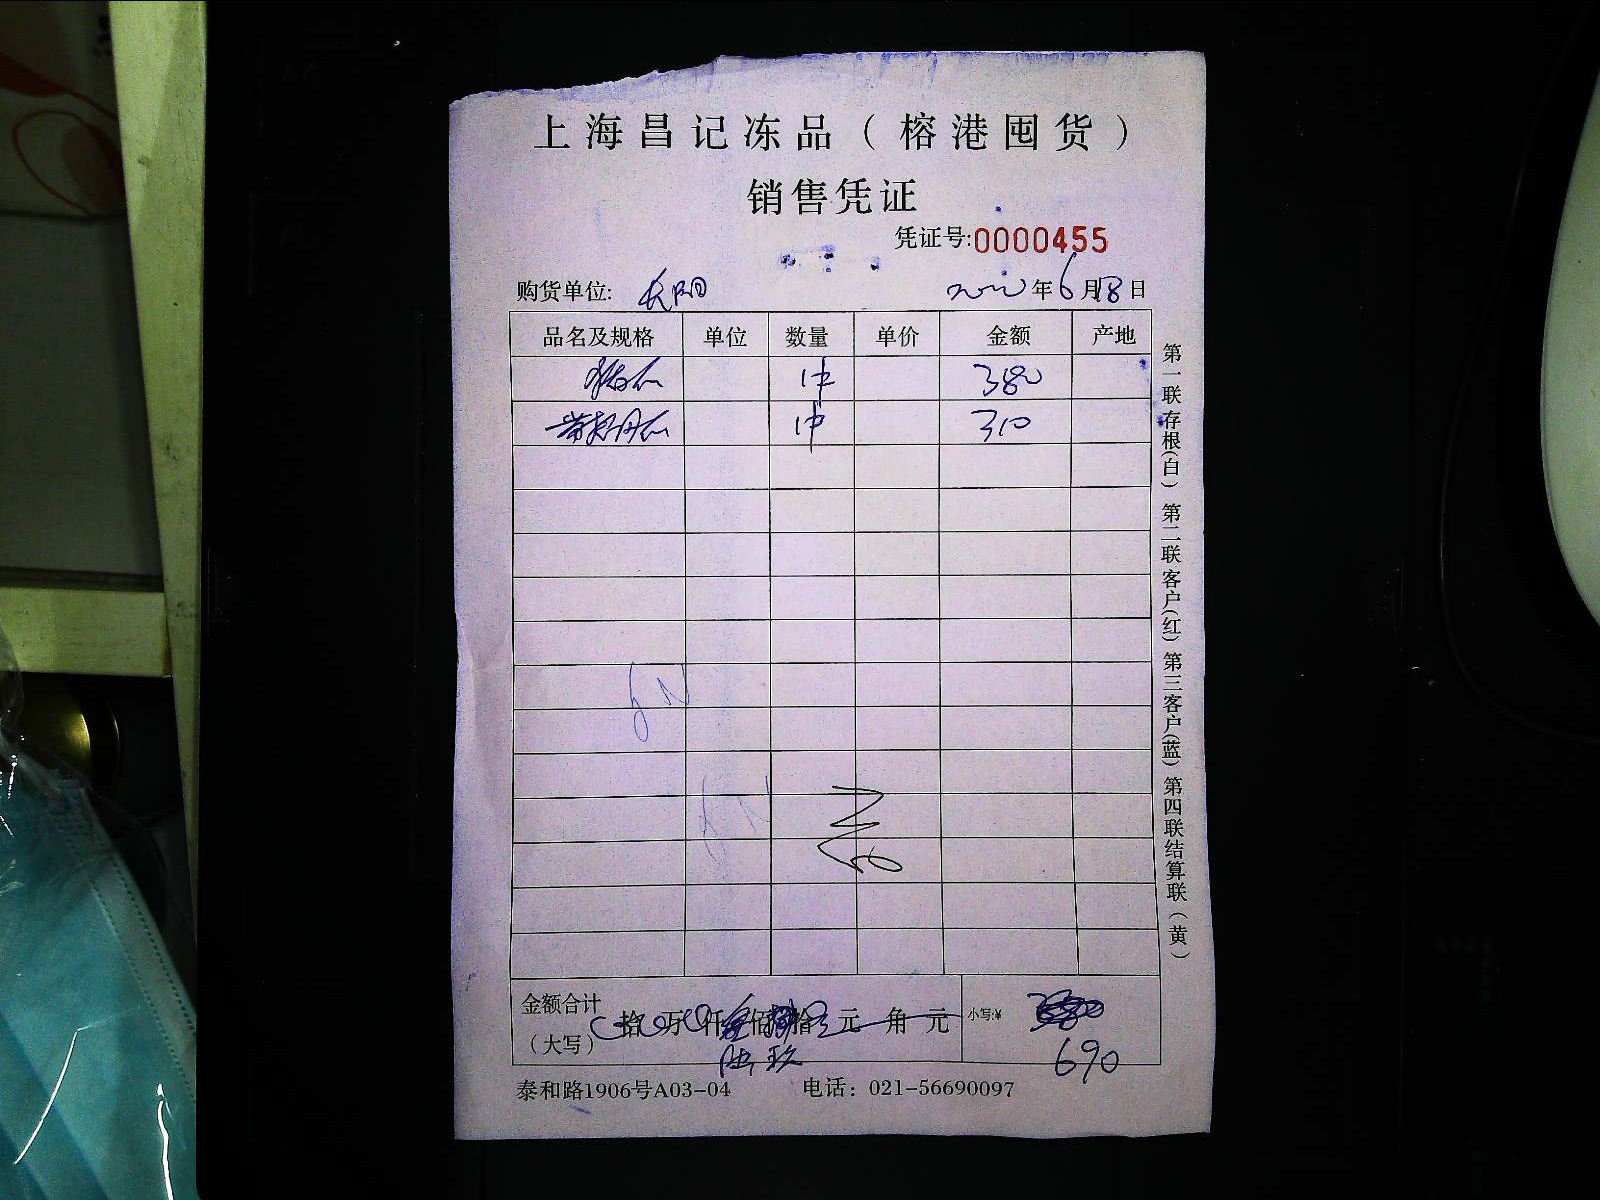 上海昌记冻品（榕港囤货）
销售凭证
凭证号:0000455
购货单位: 长阳 年6月18日
品名及规格 单位 数量 单价 金额 产地
1件 380
1件 310
金额合计 拾 万 仟 佰 拾 元 角 元 小写:¥
（大写） 陆 玖 690
泰和路1906号A03-04 电话：021-56690097
第一联存根(白) 第二联客户(红) 第三客户(蓝) 第四联结算联(黄)